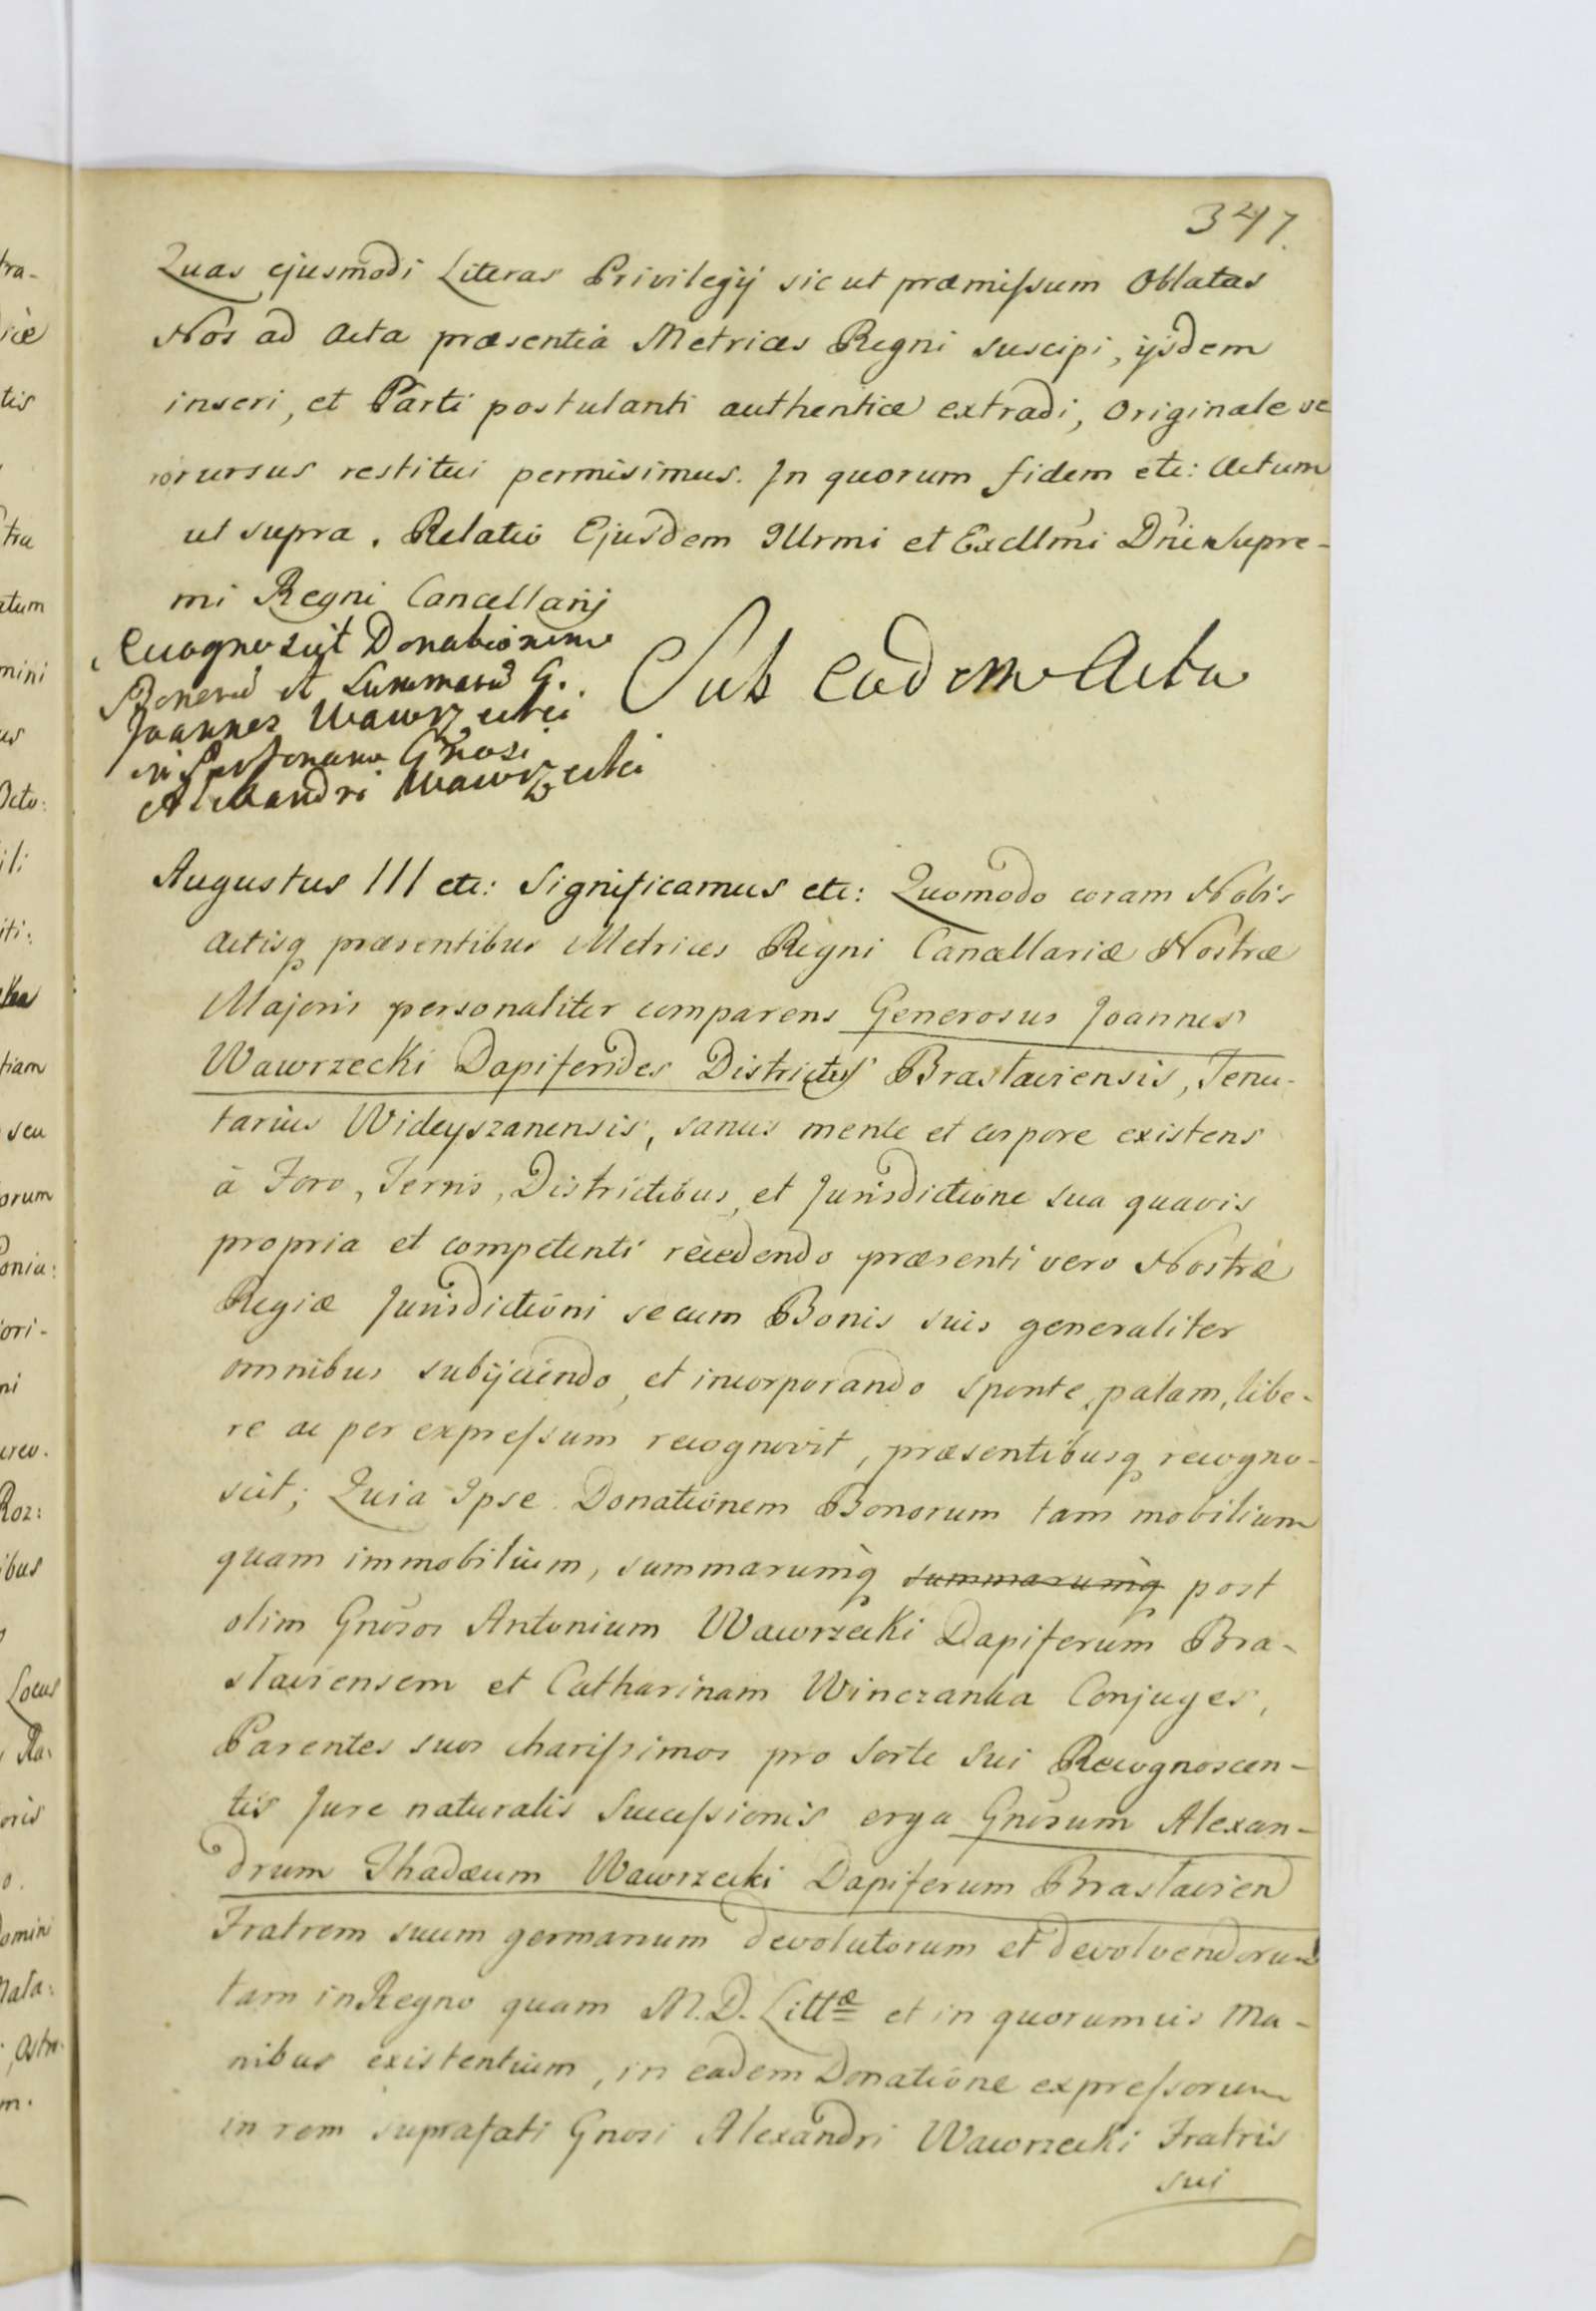 347.
Quas ejusmodi Literas Privilegij sicut præmissum Oblatas
Nos ad Acta præsentia Metrices Regni suscipi, ijsdem
inseri, et Parti postulanti authentice extradi, Originale ve
ro rursus restitui permisimus. In quorum fidem etc: Actum
ut supra. Relatio Ejusdem Illrmi et Excllmi Dni Supre-
mi Regni Cancellarij
Recognoscit Donationem
Bonorũ et Summarũ G.
Joannes Wawrzecki
in Personam Gnosi
Alexandri Wawrzecki
Sub eadem Acta
Augustus III etc: Significamus etc: Quomodo coram Nobis
Actisq præsentibus Metrices Regni Cancellariæ Nostræ
Majoris personaliter comparens Generosus Joannes
Wawrzecki Dapiferides Districtus Braslaviensis, Tenu-
tarius Wideyszanensis, sanus mente et corpore existens
à Foro, Terris, Districtibus, et Jurisdictione sua quavis
propria et competenti recedendo præsenti vero Nostræ
Regiæ Jurisdictioni se cum Bonis suis generaliter
omnibus subijciendo, et incorporando sponte, palam, libe-
re ac per expressum recognovit, præsentibusq recogno-
scit; Quia Ipse Donationem Bonorum tam mobilium
quam immobilium, summarumq̀ summarumq̀ post
olim Gnosos Antonium Wawrzecki Dapiferum Bra-
slaviensem et Catharinam Winczanka Conjuges,
Parentes suos charissimos pro sorte sui Recognoscen-
tis Jure naturalis Successionis erga Gnosum Alexan-
drum Thadæum Wawrzecki Dapiferum Braslavien
Fratrem suum germanum devolutorum et devolvendorum
tam in Regno quam M.D. Littæ et in quorumvis Ma-
nibus existentium, in eadem Donatione expressorum
in rem suprafati Gnosi Alexandri Wawrzecki Fratris
sui